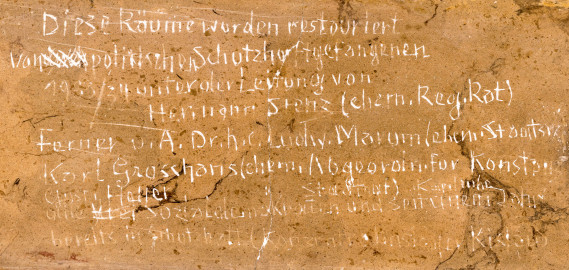 Diese Räume wurden restouriert
von politischen Schutzhaftgefangenen
1933/34 unter der Leitung von
Hermann Stenz (ehem. Reg. Rat)
Ferner u. A. Dr. h.c. Ludw. Marum (ehem. Staatsr.
Karl Grosshans (ehem. Abgeordn. für Konstan
Stadtrat) Karlsruhe
und sein Sohn
bereits in Schutzhaft